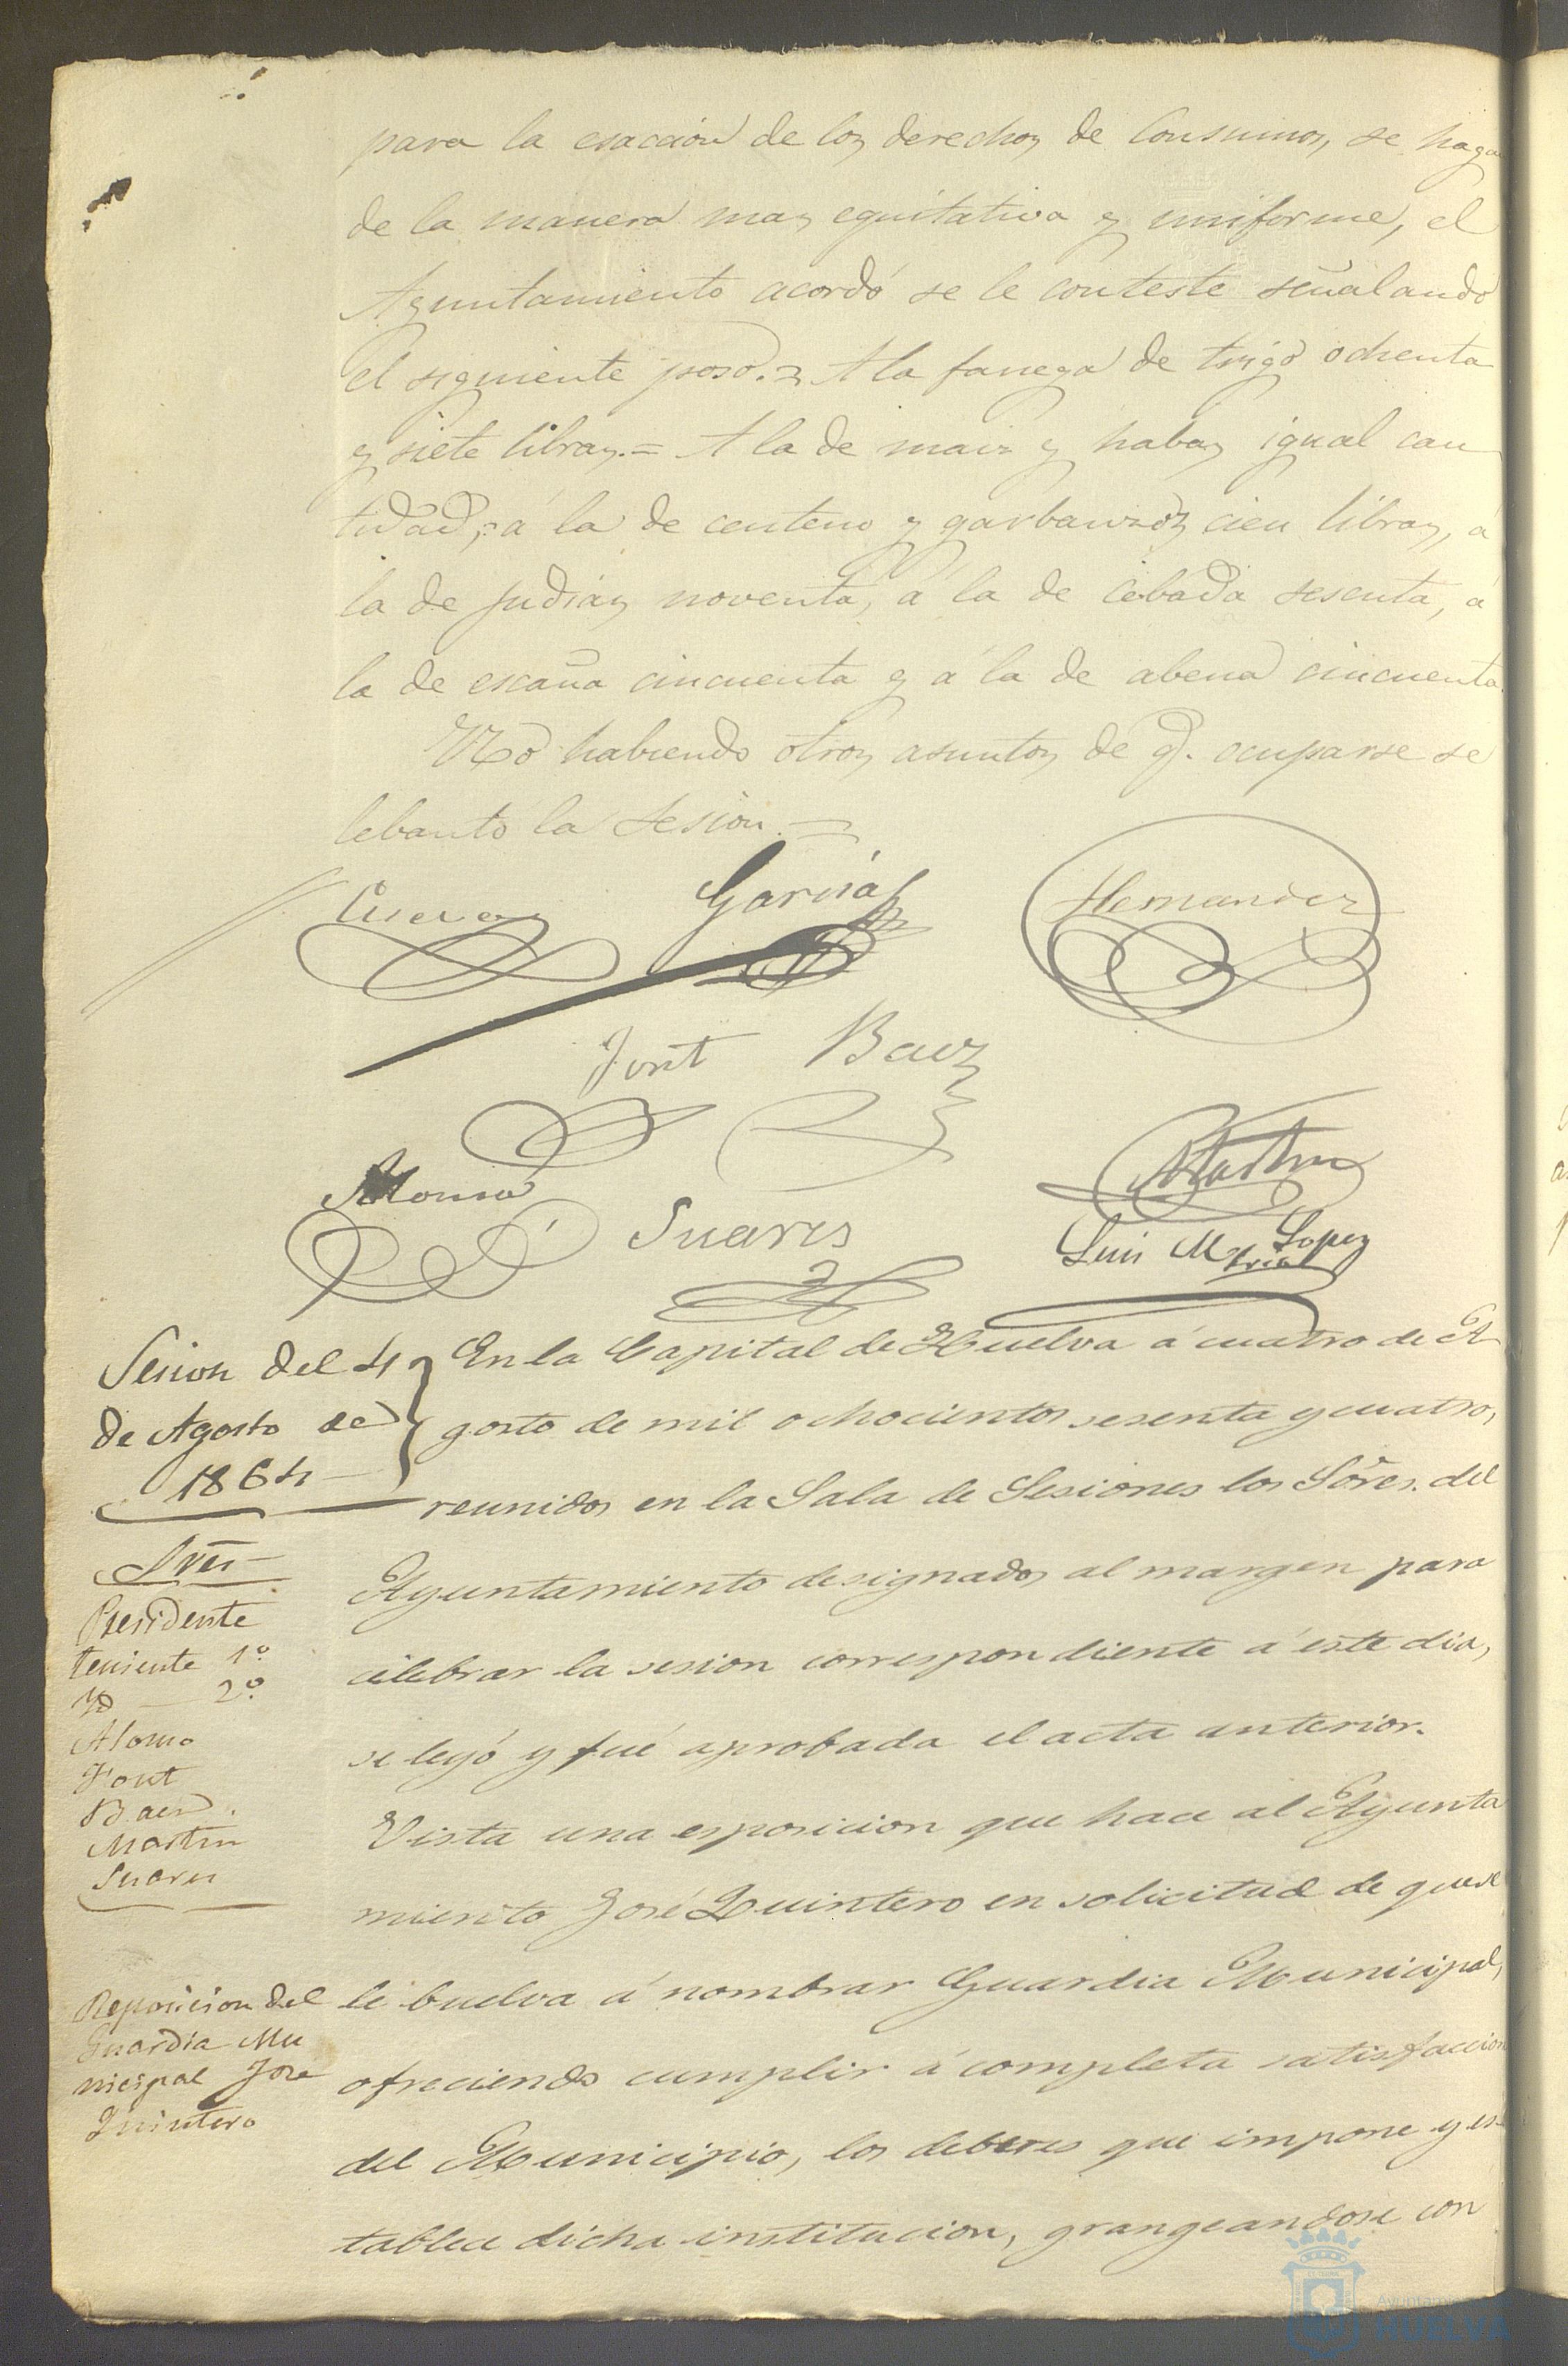 para la esacción de los derechos de Consumos, se haga
de la manera mas equitativa y uniforme, el
Ayuntamiento acordó se le conteste señalando
el siguiente peso. = A la fanega de trigo ochenta
y siete libras. = A la de maiz y habas igual can
tidad, á la de centeno y garbanzos cien libras, á
la de judias noventa, á la de cebada sesenta, á
la de escaña cincuenta y á la de abena cincuenta.
No habiendo otros asuntos de q. ocuparse se
lebantó la sesion. =
Cuevas
Garcia
Hernandez
Font
Baez
Alonso
Suares
Martin
Luis M Lopez
Sesion del 4
de Agosto de
1864
En la Capital de Huelva á cuatro de A
gosto de mil ochocientos sesenta y cuatro,
reunidos en la Sala de Sesiones los Sõres. del
Sres
Presidente
teniente 1º
Yd — 2º
Alonso
Font
Baez.
Martin
Suares
Ayuntamiento designados al margen para
celebrar la sesion correspondiente á este dia,
se leyó y fué aprobada el acta anterior.
Vista una esposicion que hace al Ayunta
miento José Quintero en solicitud de que se
Reposicion del
Guardia Mu
nicipal Jose
Quintero
le buelva á nombrar Guardia Municipal,
ofreciendo cumplir á completa satisfaccion
del Municipio, los deberes que impone y es
tablece dicha institucion, grangeandose con
HUELVA